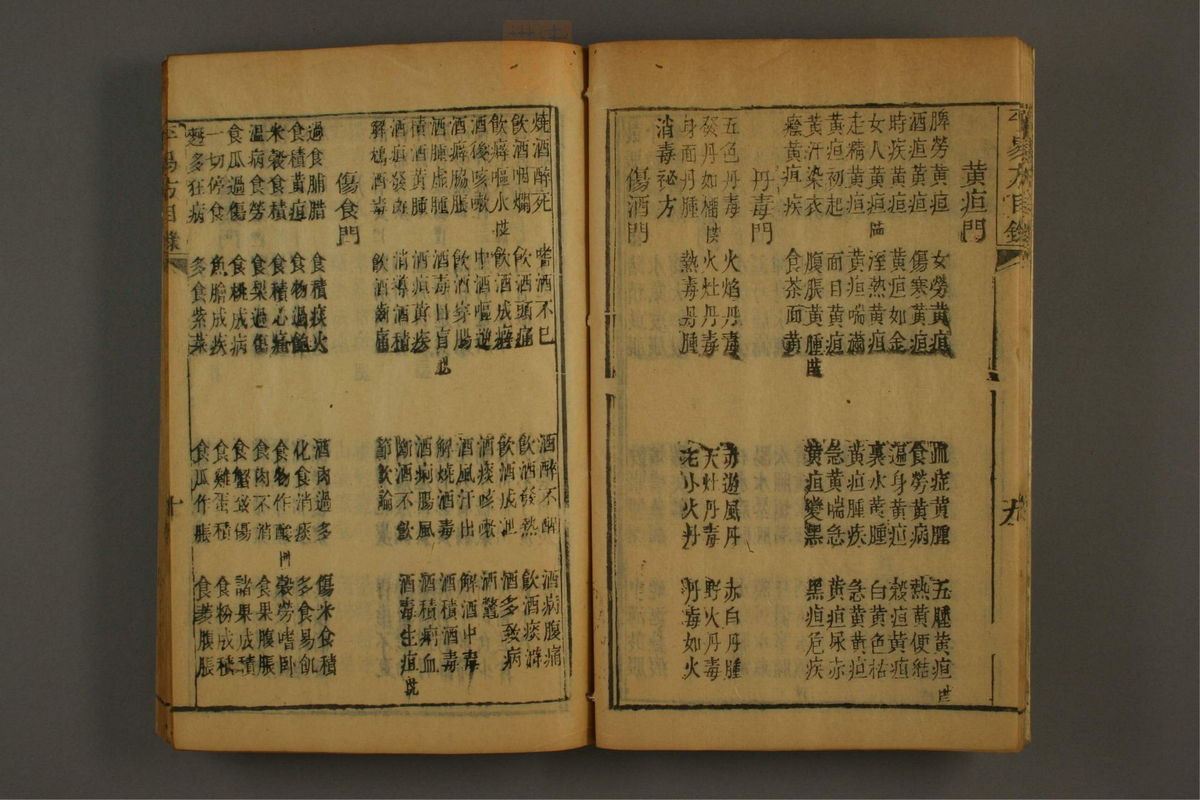 黃疸門
脾勞黃疸 女勞黃疸 血症黃腫 五腫黃疸
酒疸黃疸 傷寒黃疸 食勞黃病 熱黃便結
時疾黃疸 黃疸如金 遍身黃疸 穀疸黃疸
女人黃疸 溼熱黃疸 裏水黃腫 白黃色枯
走精黃疸 黃疸喘滿 黃疸腫疾 急黃黃疸
黃疸初起 面目黃疸 急黃喘急 黃疸尿赤
黃汗染衣 腹脹黃腫 黃疸變黑 黑疸危疾
黃疽疾 食茶面黃
丹毒門
五色丹毒 火焰丹毒 赤遊風丹 赤白丹腫
發丹如 火灶丹毒 天灶丹毒 野火丹毒
身面丹腫 熱毒丹腫 老小火丹 丹毒如火
消毒祕方
傷酒門
燒酒醉死 嗜酒不已 酒醉不醒 酒病腹痛
飲酒咽爛 飲酒頭痛 飲酒發熱 飲酒痰滯
飲癖嘔水 飲酒成癖 飲酒成 酒多致病
酒後咳嗽 中酒嘔逆 酒痰咳嗽 酒鱉
酒癖脇脹 飲酒穿腸 酒風汗出 解酒中毒
酒腫虛腫 酒毒目盲 解燒酒毒 酒積酒毒
積酒黃腫 酒疸黃疾 酒痢腸風 酒積痢血
酒疸發 消導酒積 斷酒不飲 酒毒生疽
解 酒毒 飲酒齒痛 節飲論
傷食門
過食脯腊 食積痰火 酒肉過多 傷米食積
食積黃疸 食物過飽 化食消痰 多食易飢
米穀食積 食積心痛 食物作酸 穀勞嗜臥
溫病食勞 食梨過傷 食肉不消 食果腹脹
食瓜過傷 食桃成病 食蟹致傷 諸果成積
一切停食 魚膾成疾 食雞蛋積 食粉成積
多狂病 多食紫菜 食瓜作脹 食 腹脹
十